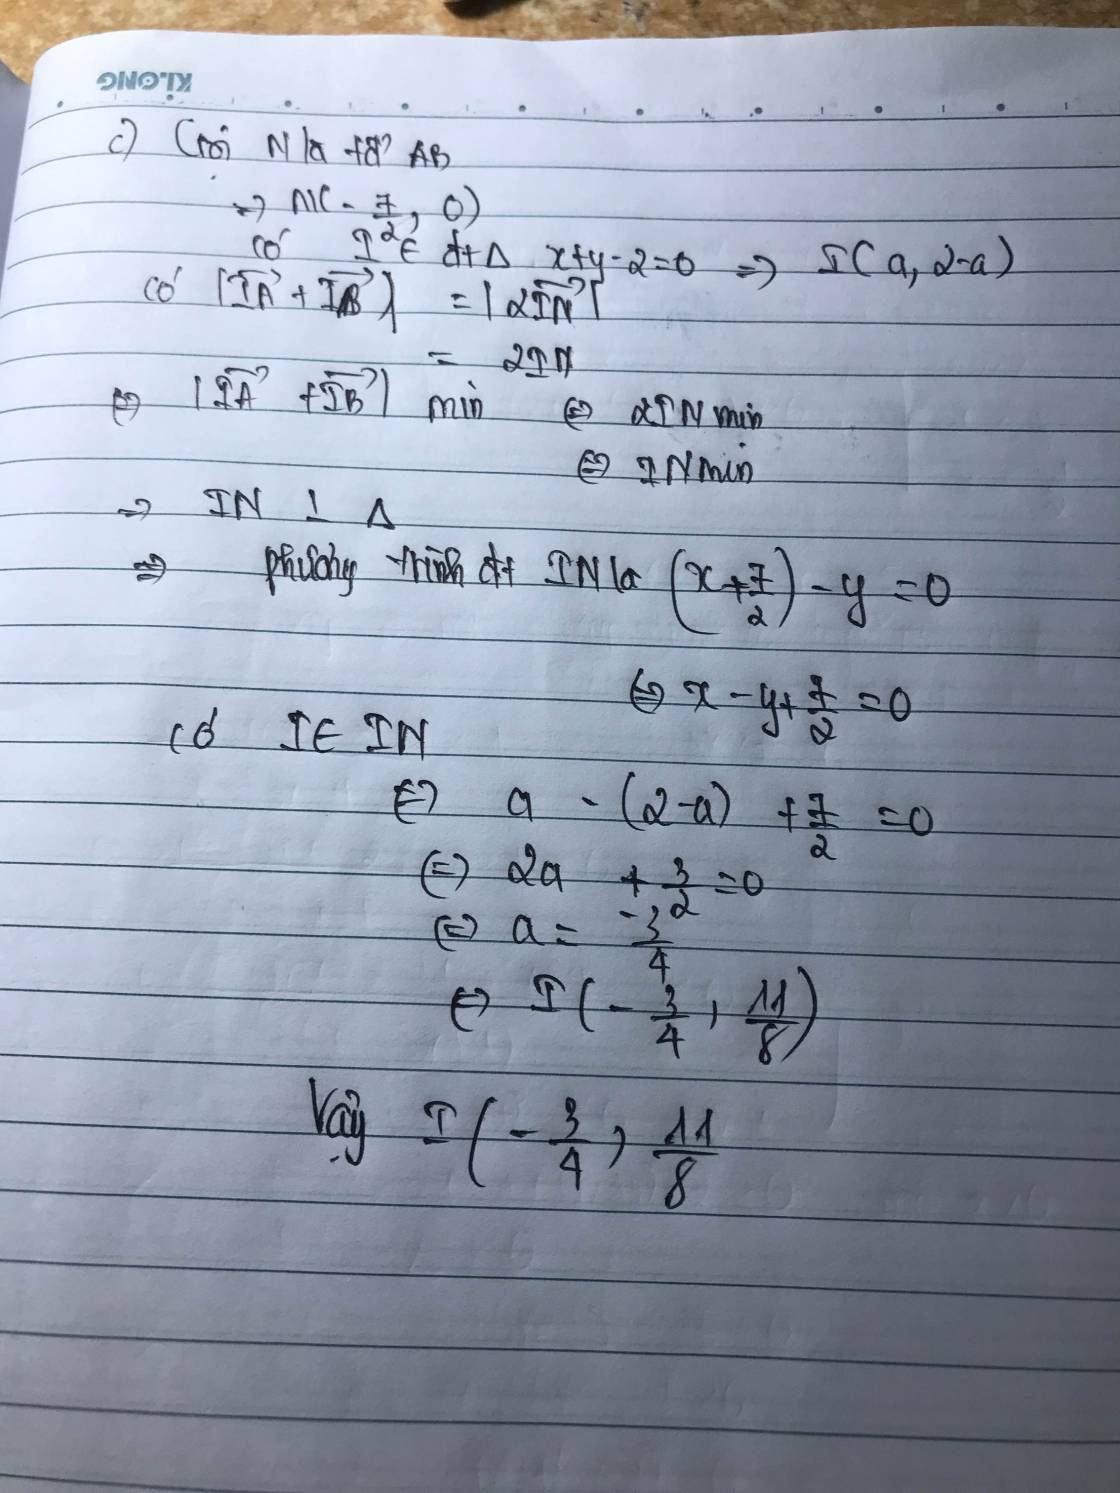 KLONG
c) Gọi N là tđ AB
=> N(-7/2, 0)
Có I ∈ đt Δ x+y-2=0 => I(a, 2-a)
Có |IA→ + IB→| = |2IN→|
= 2IN
<=> |IA→ + IB→| min <=> 2IN min
<=> IN min
=> IN ⊥ Δ
=> phương trình đt IN là (x+7/2) - y = 0
<=> x - y + 7/2 = 0
Có I ∈ IN
<=> a - (2-a) + 7/2 = 0
<=> 2a + 3/2 = 0
<=> a = -3/4
<=> I(-3/4, 11/8)
Vậy I(-3/4, 11/8